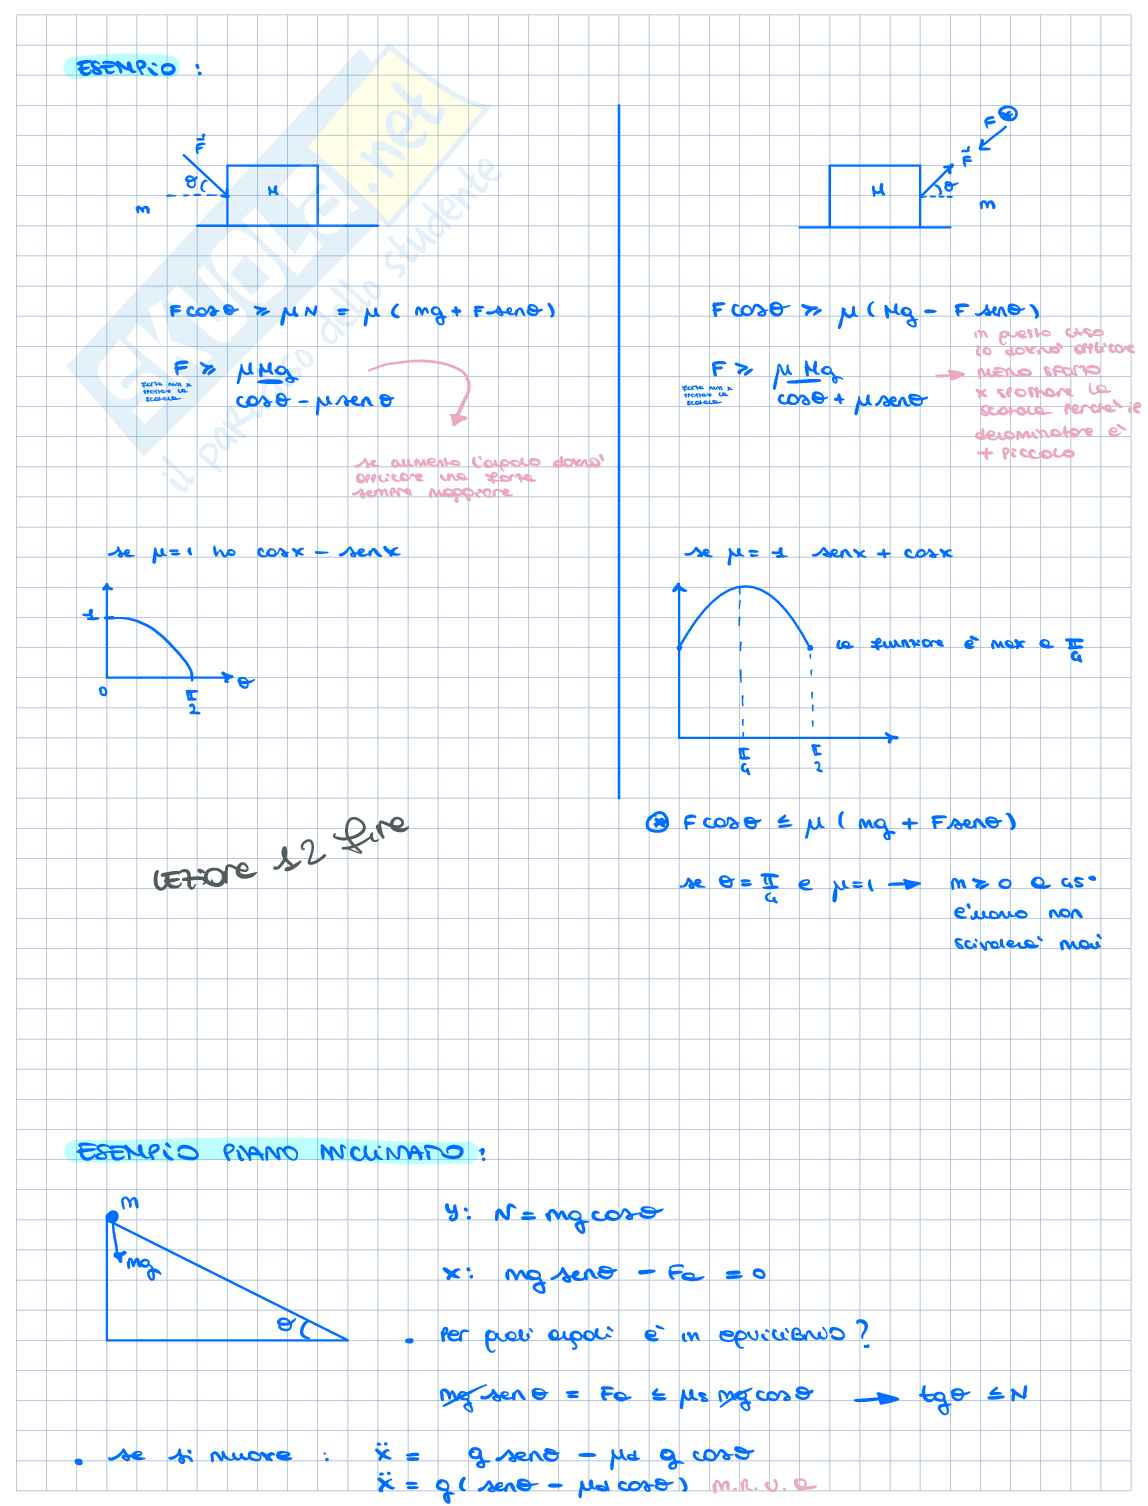 ESEMPIO :
F
θ
M
m
F *
F
θ
M
m
F cosθ ⩾ μN = μ ( mg + F senθ )
F ⩾ μ Mg
forza min x
spostare la
scatola
cosθ - μ senθ
se aumento l'angolo dovrò
applicare una forza
sempre maggiore
se μ=1 ho cosx - senx
1
0
π/2
θ
F cosθ ⩾ μ ( Mg - F senθ )
F ⩾ μ Mg
forza min x
spostare la
scatola
cosθ + μ senθ
in questo caso
io dovrò applicare
→ MENO SFORZO
x spostare la
scatola perché il
denominatore è
+ piccolo
se μ = 1 senx + cosx
la funzione è max a π/4
π/4
π/2
* F cosθ ≤ μ ( mg + F senθ )
se θ = π/4 e μ=1 → m ⩾ 0 a 45°
l'uomo non
scivolerà mai
LEZIONE 12 fine
ESEMPIO PIANO INCLINATO :
m
mg
θ
y: N = mg cosθ
x: mg senθ - Fa = 0
• Per quali angoli è in equilibrio ?
mg senθ = Fa ≤ μs mg cosθ → tgθ ≤ N
• se si muove : ẍ = g senθ - μd g cosθ
ẍ = g ( senθ - μd cosθ ) M.R.U.A
SKUOLA.net
il paradiso dello studente